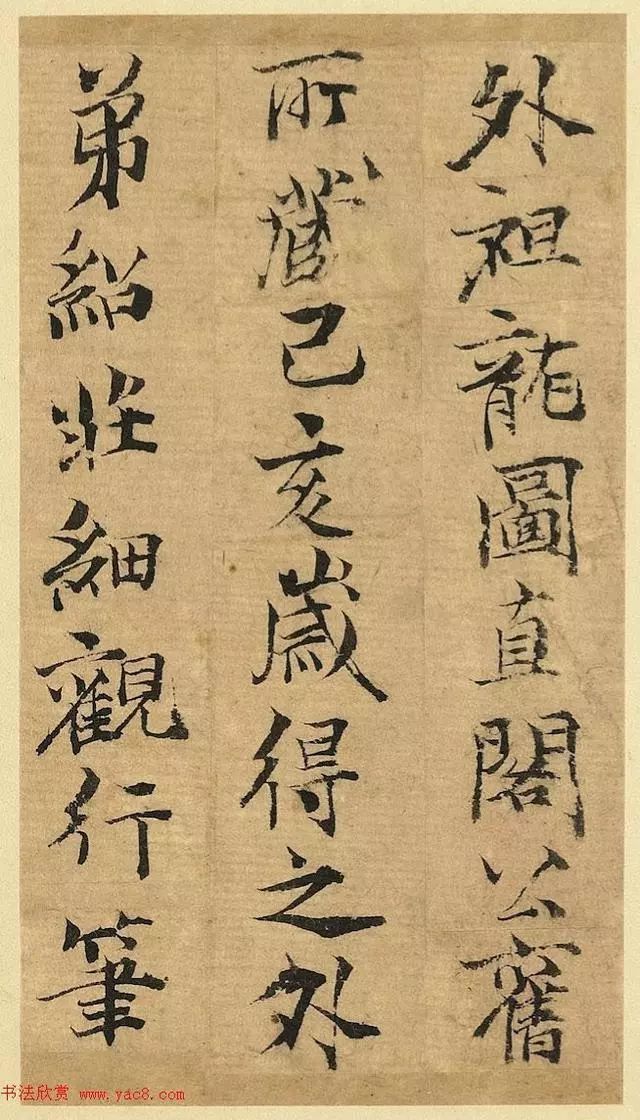 外祖龍圖直閣公舊
所己亥歲得之外
弟紹莊細觀行筆
书法欣赏 www.yac8.com